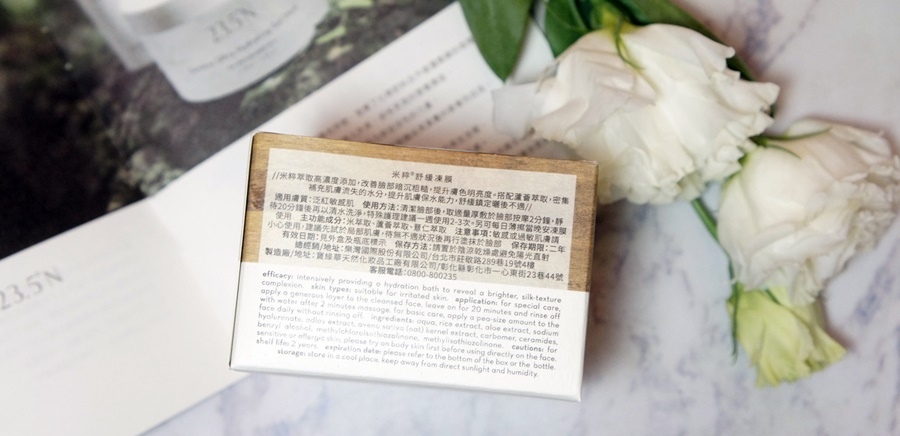 23.5N
米粹®舒緩凍膜
//米粹萃取高濃度添加,改善臉部暗沉粗糙,提升膚色明亮度。搭配蘆薈萃取,密集
補充肌膚流失的水分,提升肌膚保水能力,舒緩鎮定曬後不適//
適用膚質:泛紅敏感肌 使用方法:清潔臉部後,取適量厚敷於臉部按摩2分鐘,靜
待20分鐘後再以清水洗淨,特殊護理建議一週使用2-3次。另可每日薄擦當晚安凍膜
使用 主功能成分:米萃取、蘆薈萃取、薏仁萃取 注意事項:敏感或過敏肌膚請
小心使用,建議先試於局部肌膚,待無不適狀況後再行塗抹於臉部 保存期限:二年
有效日期:見外盒及瓶底標示 保存方法:請置於陰涼乾燥處避免陽光直射
總經銷/地址:樂灣國際股份有限公司/台北市莊敬路289巷19號4樓
製造廠/地址:寶蜂草天然化妝品工廠有限公司/彰化縣彰化市一心東街23巷44號
客服電話:0800-800235
efficacy: intensively providing a hydration bath to reveal a brighter, silk-texture
complexion. skin types: suitable for irritated skin. application: for special care,
apply a generous layer to the cleansed face, leave on for 20 minutes and rinse off
with water after 2 minutes massage. for basic care, apply a pea-size amount to the
face daily without rinsing off. ingredients: aqua, rice extract, aloe extract, sodium
hyaluronate, adlay extract, avena sativa (oat) kernel extract, carbomer, ceramides,
benzyl alcohol, methylchloroisothiazolinone, methylisothiazolinone. cautions: for
sensitive or allergic skin, please try on body skin first before using directly on the face.
shelf life: 2 years. expiration date: please refer to the bottom of the box or the bottle.
storage: store in a cool place, keep away from direct sunlight and humidity.
23.5N